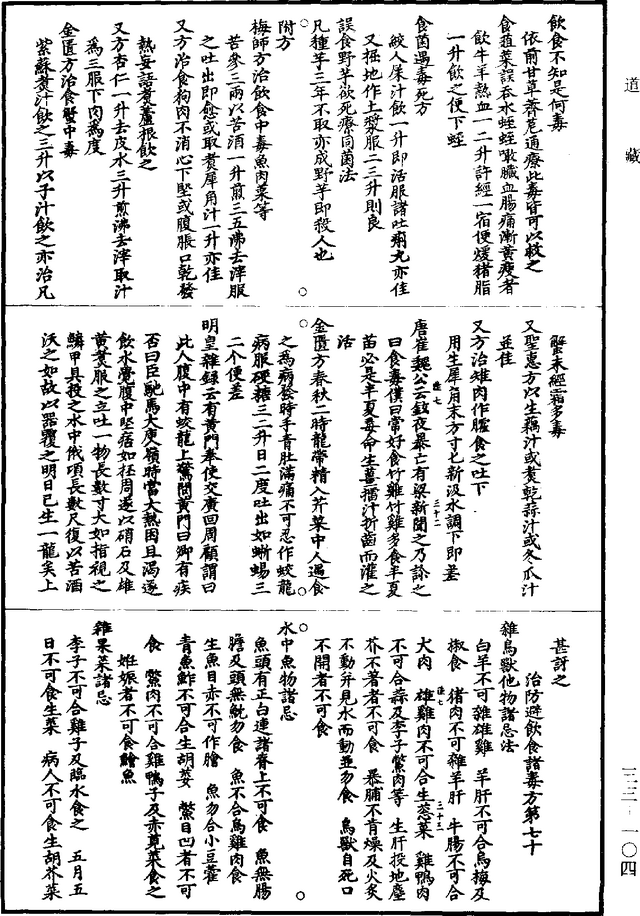 道藏
飲食不知是何毒
依前甘草薺苨通療此毒皆可以救之
食葅菜誤吞水蛭蛭噉臟血腸痛漸黃瘦者
飲牛羊熱血一二升許經一宿便煖猪脂
一升飲之便下蛭
食菌遇毒死方
絞人屎汁飲一升即活服諸吐痢丸亦佳
又掘地作土漿服二三升則良
誤食野芋欲死療同菌法
凡種芋三年不取亦成野芋即殺人也
附方
梅師方治飲食中毒魚肉菜等
苦參三兩以苦酒一升煎三五沸去滓服
之吐出即愈或取煮犀角汁一升亦佳
又方治食狗肉不消心下堅或腹脹口乾發
熱妄語煮蘆根飲之
又方杏仁一升去皮水三升煎沸去滓取汁
為三服下肉為度
金匱方治食蟹中毒
紫蘇煮汁飲之三升以子汁飲之亦治凡
蟹未經霜多毒
又聖惠方以生藕汁或煮乾蒜汁或冬瓜汁
並佳
又方治雉肉作臛食之吐下
用生犀角末方寸匕新汲水調下即差
唐崔魏公云鉉夜暴亡有梁新聞之乃診之
曰食毒僕曰常好食竹雞竹雞多食半夏
苗必是半夏毒命生薑擂汁折齒而灌之
活
金匱方春秋二時龍帶精入芹菜中人遇食
之為病發時手青肚滿痛不可忍作蛟龍
病服硬糖三二升日二度吐出如蜥蜴三
二个便差
明皇雜録云有黃門奉使交廣回周顧謂曰
此人腹中有蛟龍上驚問黃門曰卿有疾
否曰臣馳馬大庾嶺時當大熱困且渴遂
飲水覺腹中堅痞如杯周遂以硝石及雄
黃煮服之立吐一物長數寸大如指視之
鱗甲具投之水中俄頃長數尺復以苦酒
沃之如故以器覆之明日已生一龍矣上
甚訝之
治防避飲食諸毒方第七十
雜鳥獸他物諸忌法
白羊不可雜雄雞　羊肝不可合烏梅及
椒食　猪肉不可雜羊肝　牛腸不可合
犬肉　雄雞肉不可合生葱菜　雞鴨肉
不可合蒜及李子鱉肉等　生肝投地塵
芥不著者不可食　暴脯不肯燥及火炙
不動并見水而動並勿食　鳥獸自死口
不開者不可食
水中魚物諸忌
魚頭有正白連諸脊上不可食　魚無腸
膽及頭無魫勿食　魚不合烏雞肉食
生魚目赤不可作膾　魚勿合小豆藿
青魚鮓不可合生胡荽　鱉目凹者不可
食　鱉肉不可合雞鴨子及赤莧菜食之
妊娠者不可食鱠魚
雜果菜諸忌
李子不可合雞子及臨水食之　五月五
日不可食生菜　病人不可食生胡芥菜
三三—一〇四